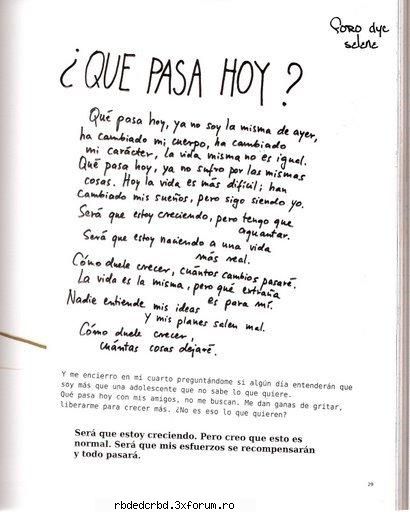 FORO dye
selene
¿QUE PASA HOY?
Qué pasa hoy, ya no soy la misma de ayer,
ha cambiado mi cuerpo, ha cambiado
mi carácter, la vida misma no es igual.
Qué pasa hoy, ya no sufro por las mismas
cosas. Hoy la vida es más difícil; han
cambiado mis sueños, pero sigo siendo yo.
Será que estoy creciendo, pero tengo que
aguantar.
Será que estoy naciendo a una vida
más real.
Cómo duele crecer, cuántos cambios pasaré.
La vida es la misma, pero qué extraña
es para mí.
Nadie entiende mis ideas
y mis planes salen mal.
Cómo duele crecer,
cuántas cosas dejaré.
Y me encierro en mi cuarto preguntándome si algún día entenderán que
soy más que una adolescente que no sabe lo que quiere.
Qué pasa hoy con mis amigos, no me buscan. Me dan ganas de gritar,
liberarme para crecer más. ¿No es eso lo que quieren?
Será que estoy creciendo. Pero creo que esto es
normal. Será que mis esfuerzos se recompensarán
y todo pasará.
29
rbdedcrbd.3xforum.ro